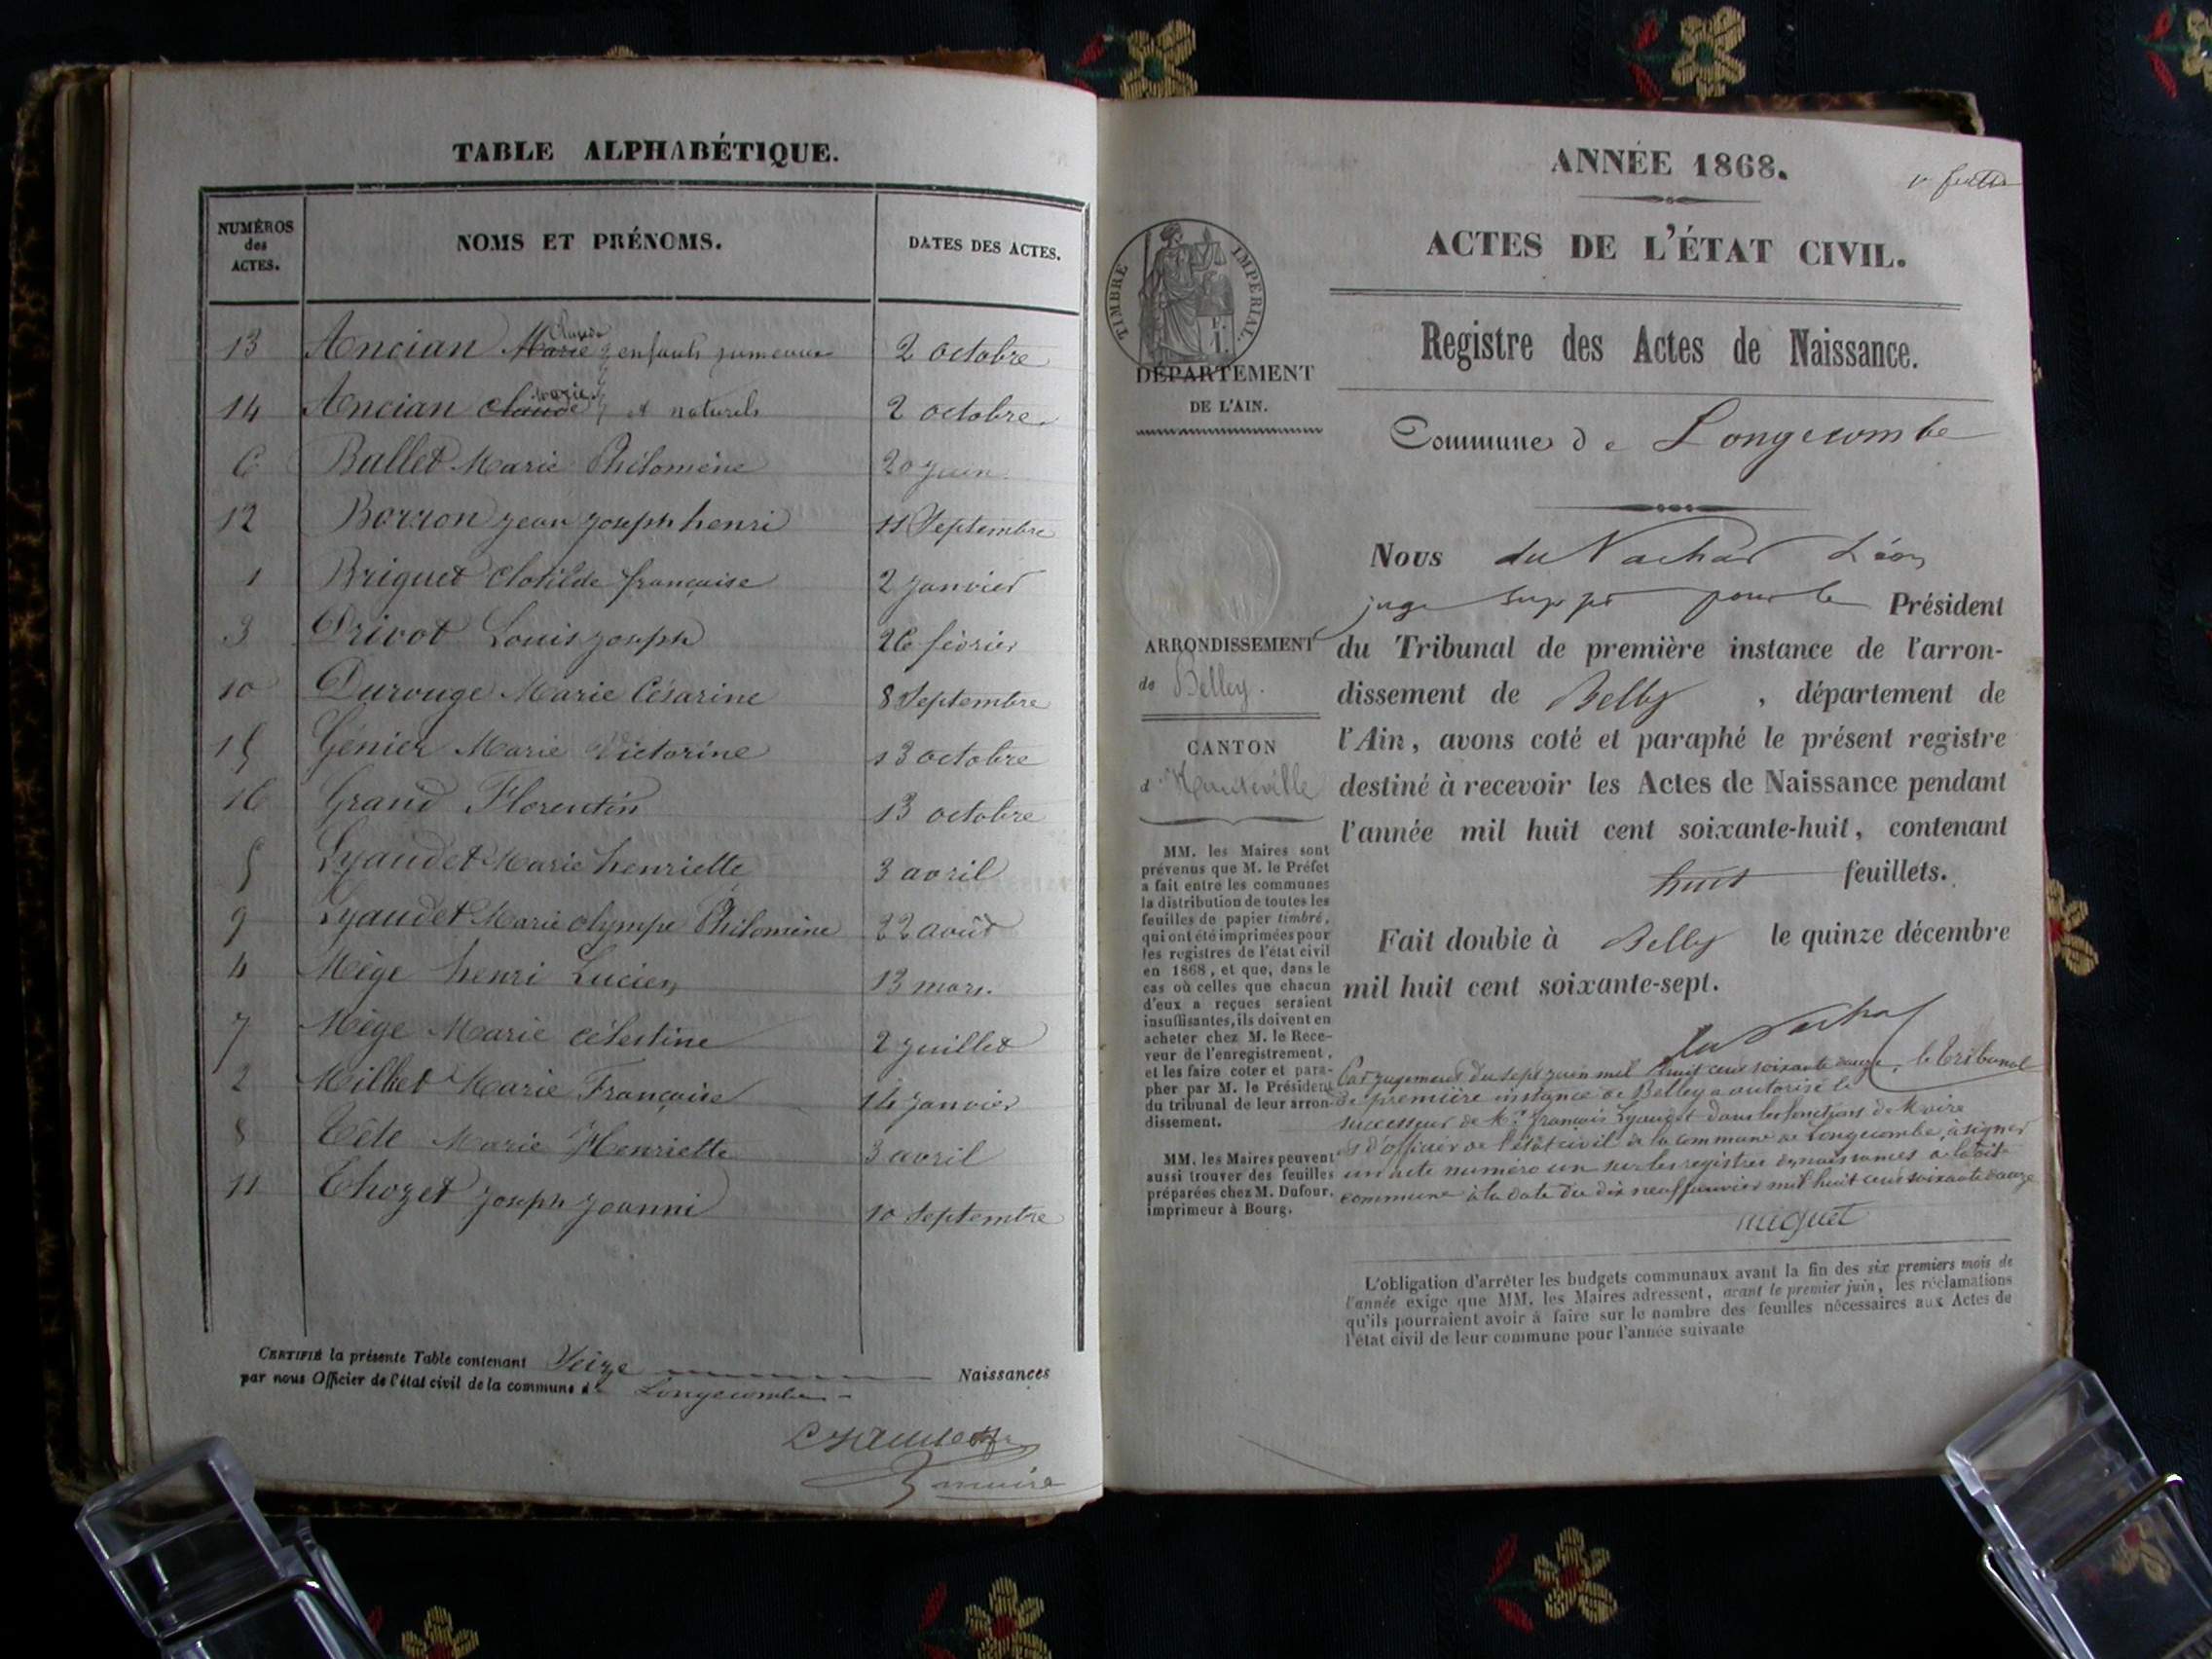 TABLE ALPHABÉTIQUE.
NUMÉROS des ACTES.
NOMS ET PRÉNOMS.
DATES DES ACTES.
13 Ancian Marie Claude enfants jumeaux 2 octobre
14 Ancian Claude Marie et naturels 2 octobre
6 Ballet Marie Philomène 20 juin
12 Borron jean joseph henri 11 Septembre
1 Briguet Clotilde françoise 2 janvier
3 Drivot Louis joseph 26 février
10 Durouge Marie Césarine 8 Septembre
15 Génier Marie Victorine 13 octobre
16 Grand Florentin 13 octobre
5 Lyaudet Marie henriette 3 avril
9 Lyaudet Marie olympe Philomène 22 août
4 Mège henri Lucien 13 mars.
7 Mège Marie célestine 2 juillet
2 Millet Marie Françoise 14 janvier
8 Tête Marie Henriette 3 avril
11 Thozet joseph joanni 10 Septembre
CERTIFIÉ la présente Table contenant Seize Naissances
par nous Officier de l'état civil de la commune de Longecombe
Lyaudet
maire
ANNÉE 1868.
ACTES DE L'ÉTAT CIVIL.
Registre des Actes de Naissance.
TIMBRE IMPÉRIAL.
DÉPARTEMENT
DE L'AIN.
Commune de Longecombe
Nous du Nachat Léon
juge supp pour le Président
ARRONDISSEMENT
de Belley.
CANTON
d'Hauteville
du Tribunal de première instance de l'arron-
dissement de Belley, département de
l'Ain, avons coté et paraphé le présent registre
destiné à recevoir les Actes de Naissance pendant
l'année mil huit cent soixante-huit, contenant
huit feuillets.
Fait double à Belley le quinze décembre
mil huit cent soixante-sept.
du Nachat
MM. les Maires sont
prévenus que M. le Préfet
a fait entre les communes
la distribution de toutes les
feuilles de papier timbré,
qui ont été imprimées pour
les registres de l'état civil
en 1868, et que, dans le
cas où celles que chacun
d'eux a reçues seraient
insuffisantes, ils doivent en
acheter chez M. le Rece-
veur de l'enregistrement,
et les faire coter et para-
pher par M. le Président
du tribunal de leur arron-
dissement.
MM. les Maires peuvent
aussi trouver des feuilles
préparées chez M. Dufour,
imprimeur à Bourg.
Par jugement du sept juin mil huit cent soixante douze, le tribunal
de première instance de Belley a autorisé le
successeur de Mr. François Lyaudet dans les fonctions de Maire
et d'officier de l'état civil de la commune de Longecombe, à signer
un acte numéro un sur les registres de naissances de la dite
commune à la date du dix neuf janvier mil huit cent soixante douze
miguet
L'obligation d'arrêter les budgets communaux avant la fin des six premiers mois de
l'année exige que MM. les Maires adressent, avant le premier juin, les réclamations
qu'ils pourraient avoir à faire sur le nombre des feuilles nécessaires aux Actes de
l'état civil de leur commune pour l'année suivante